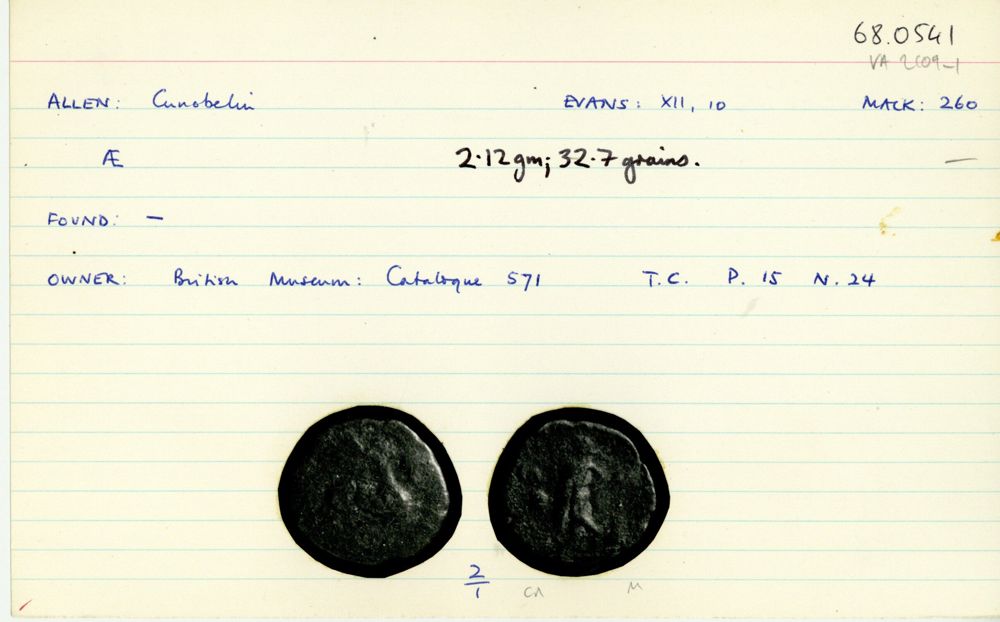 68.0541
VA 2109-1
ALLEN: Cunobelin EVANS: XII, 10 MACK: 260
Æ 2.12gm; 32.7 grains. —
FOUND: —
OWNER: British Museum: Catalogue 571 T.C. P. 15 N. 24
2/1
M